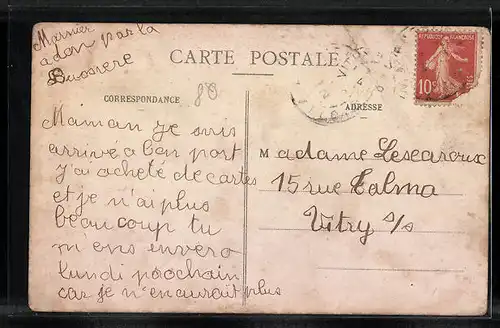 Marnier
adon par la
Bussiere
CARTE POSTALE
REPUBLIQUE FRANÇAISE
10
CORRESPONDANCE
80
ADRESSE
Maman je suis
arrivé a bon port
j'ai acheté de cartes
et je n'ai plus
beaucoup tu
m'ens envero
lundi poochain
car je n'en aurait plus
Madame Lescaroux
15 rue Talma
Vitry s/s